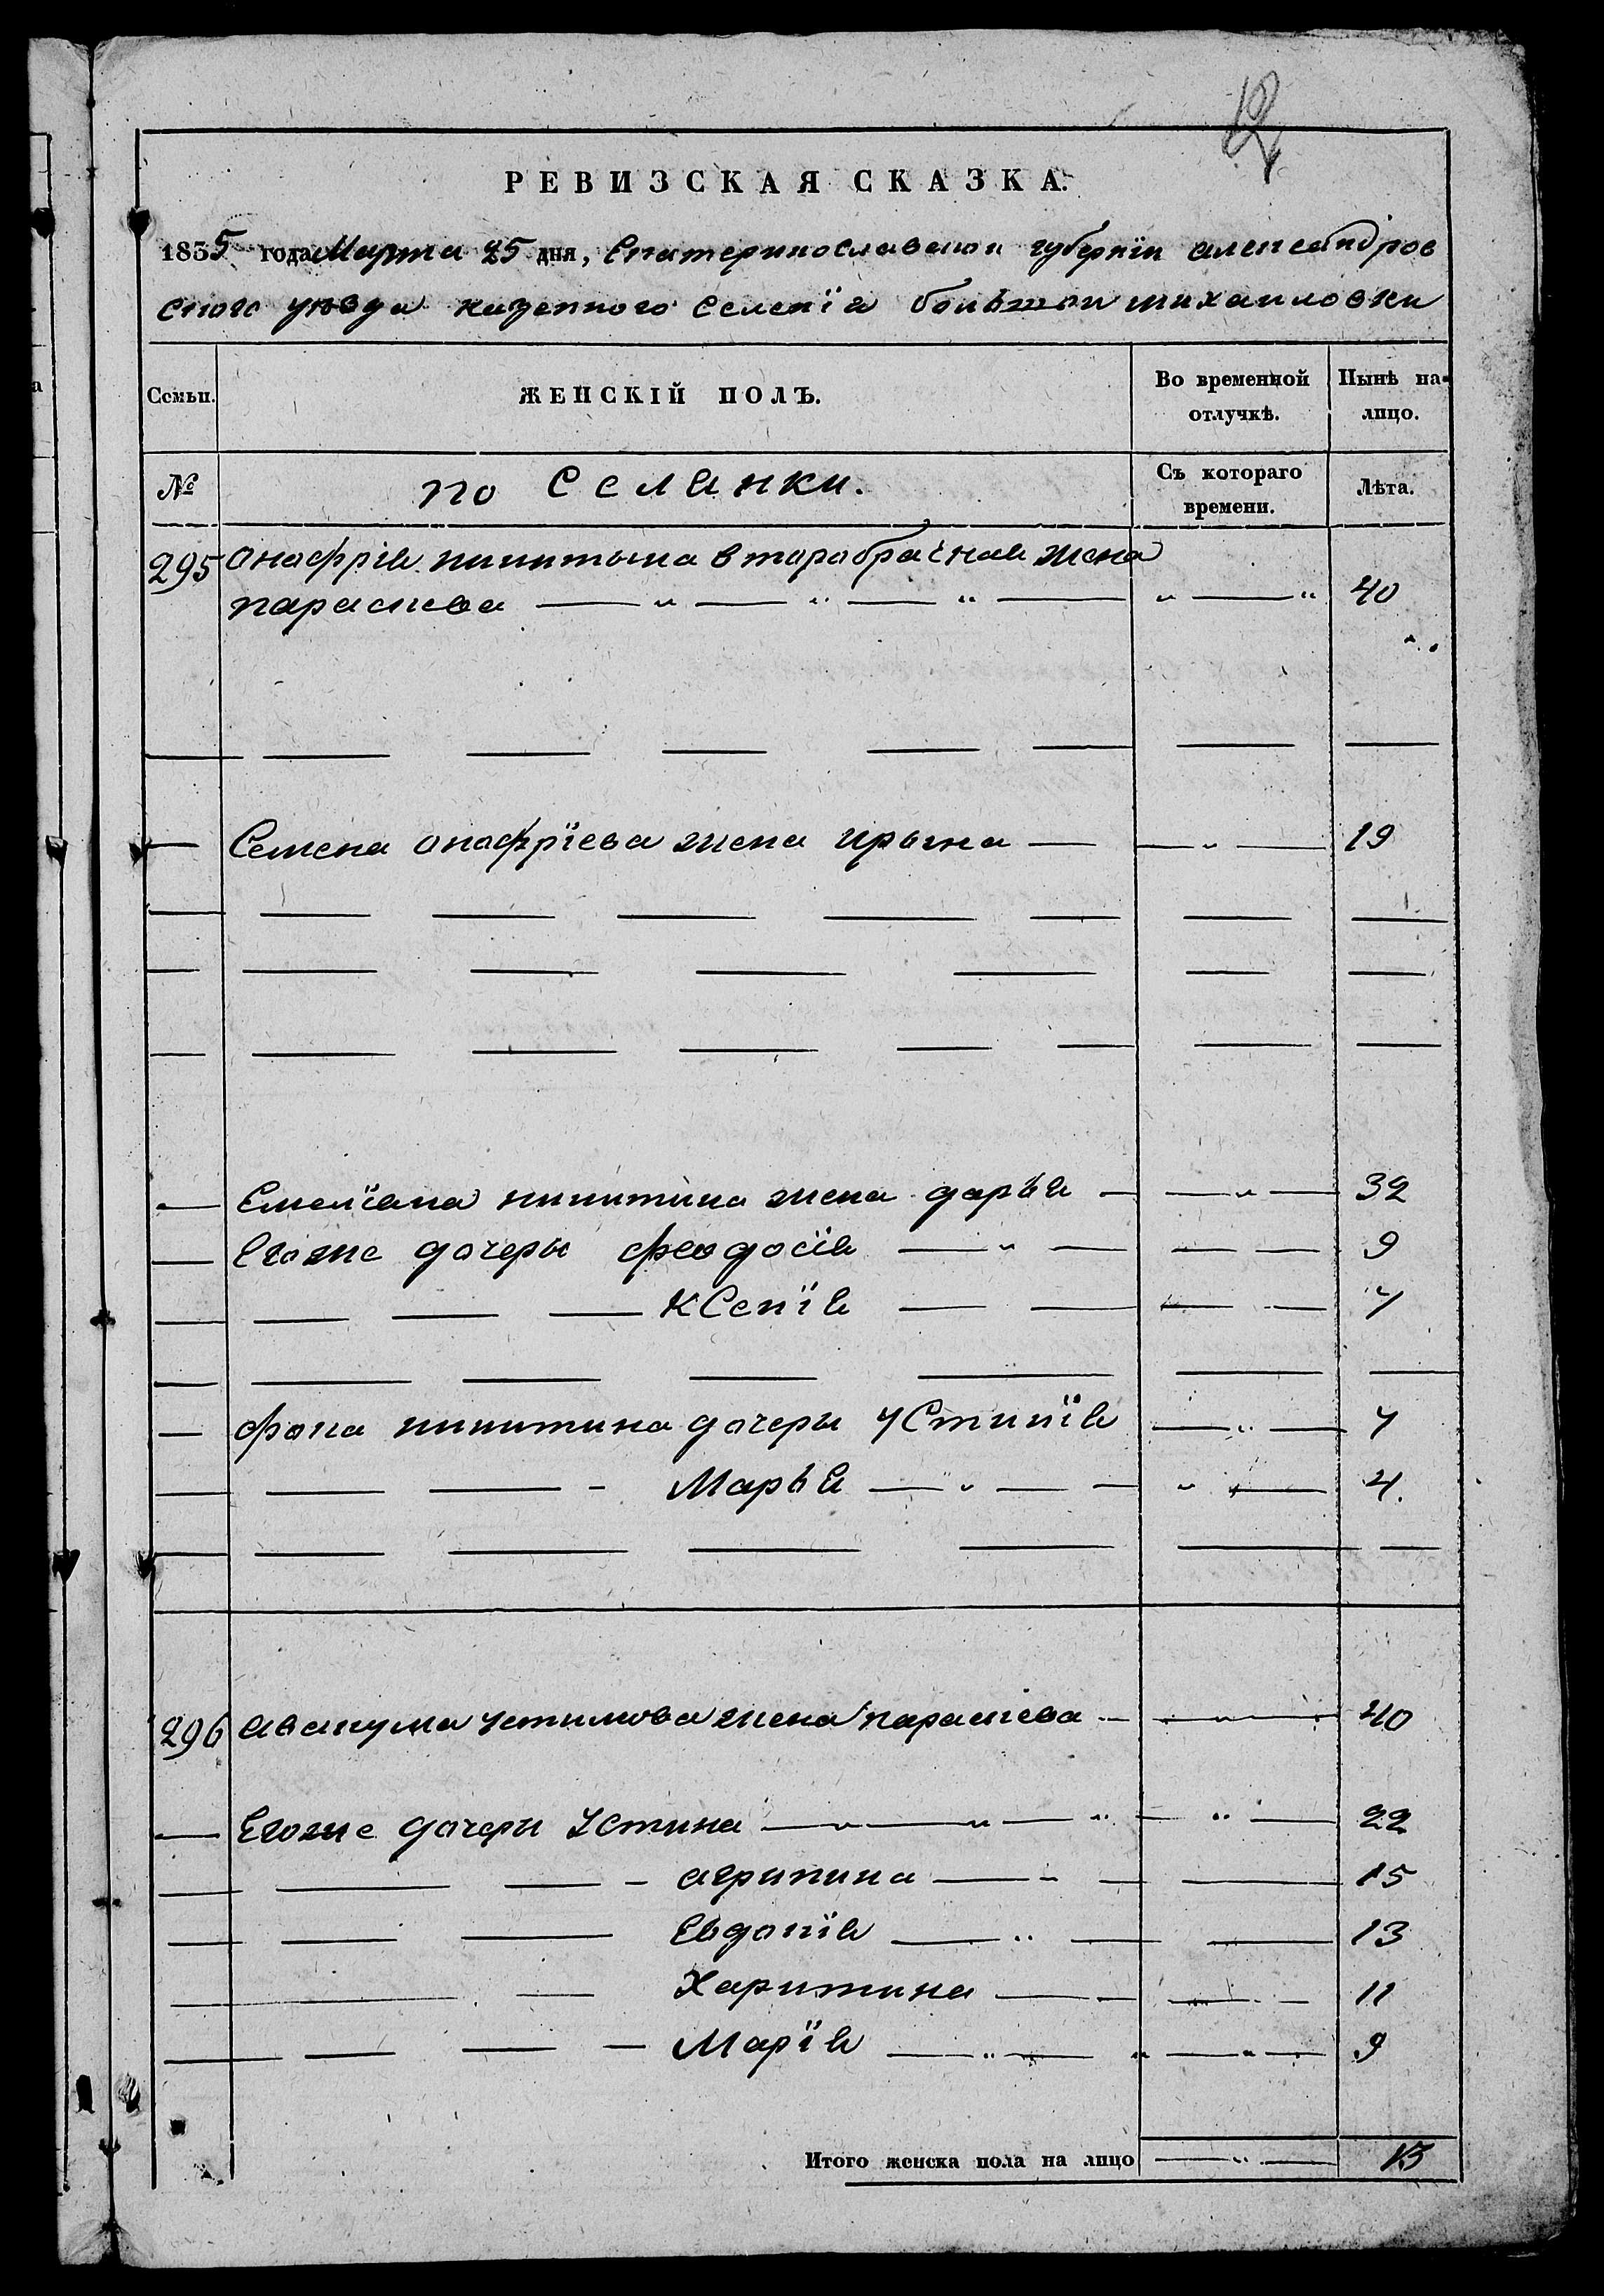 12
РЕВИЗСКАЯ СКАЗКА.
1835 года Марта 25 дня, Екатеринославской губернїи александров
ского уезда казенного селенїя большой михаиловки
Семьи.
ЖЕНСКІЙ ПОЛЪ.
Во временной отлучкѣ.
Нынѣ на-лицо.
№
поселянки.
Съ котораго времени.
Лѣта.
295 онофрія никитына второбрачная жена
параскева — " — " — " — " — " 40
— Семена онофрїева жена ирына — — " — 19
— Емелїана никитина жена дарья — — " — 32
— Егоже дочеры феодосїя — " — — — 9
— — — — Ксенїя — — — — 7
— фока никитина дочеры устинїя — " — 7
— — — - Марья — " — — " — 4.
296 авакума устимова жена параскева — — " — 40
— Егоже дочеры Устина — " — " — " — " — 22
— — — - агрипина — - — — 15
— — — Евдокїя — " — — 13
— — — Харитина — — — — 11
— — — — Марїя — " — " — " — 9
Итого женска пола на лицо — " — 13